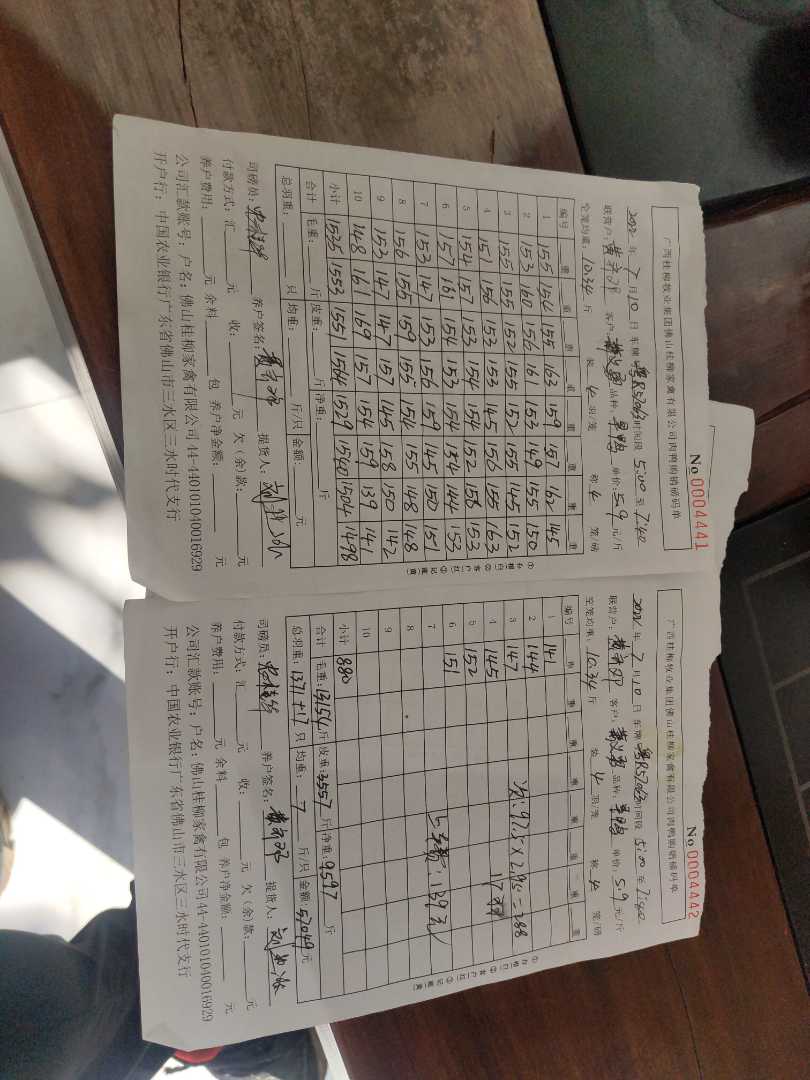 广西桂柳牧业集团佛山桂柳家禽有限公司肉鸭购销磅码单
No 0004441
2022 年 7 月 10 日 车牌 粤R570 时间段 5:00 至 7:40
联营户: 客户: 品种: 单价: 5.9 元/斤
空笼均重: 10.34 斤 装 4 羽/笼 称 4 笼/磅
编号 重 重 重 重 重 重 重 重
1 155 154 155 163 159 157 162 145
2 153 160 156 161 153 149 155 150
3 155 155 152 155 152 155 145 152
4 151 156 153 153 145 156 155 163
5 154 157 153 154 154 152 156 153
6 157 161 154 153 154 154 144 153
7 153 147 153 156 159 145 150 151
8 156 155 159 155 154 155 148 148
9 153 147 147 157 145 158 150 142
10 148 161 169 157 154 159 139 141
小计 1535 1553 1551 1564 1529 1540 1504 1498
合计 毛重: 斤 皮重: 斤 净重: 斤
总羽重: 只 均重: 斤/只 金额: 元
①存根(白) ②客户(红) ③记账(黄)
司磅员: 养户签名: 提货人:
付款方式: 汇 元 收: 元 欠(余)款: 元
养户费用: 元 余料 包 养户净金额: 元
公司汇款账号: 户名: 佛山桂柳家禽有限公司44-440101040016929
开户行: 中国农业银行广东省佛山市三水区三水时代支行
广西桂柳牧业集团佛山桂柳家禽有限公司肉鸭购销磅码单
No 0004442
2022 年 7 月 10 日 车牌 粤R570 时间段 5:00 至 7:40
联营户: 客户: 品种: 单价: 5.9 元/斤
空笼均重: 10.34 斤 装 4 羽/笼 称 4 笼/磅
编号 重 重 重 重 重 重 重 重
1 141
2 144
3 147
4 145
5 152
6 151
7
8
9
10
97.5×2.95=288
17
139元
小计 880
合计 毛重: 13154 斤 皮重: 3557 斤 净重: 9597 斤
总羽重: 1371+17 只 均重: 7 斤/只 金额: 57049 元
①存根(白) ②客户(红) ③记账(黄)
司磅员: 养户签名: 提货人:
付款方式: 汇 元 收: 元 欠(余)款: 元
养户费用: 元 余料 包 养户净金额: 元
公司汇款账号: 户名: 佛山桂柳家禽有限公司44-440101040016929
开户行: 中国农业银行广东省佛山市三水区三水时代支行